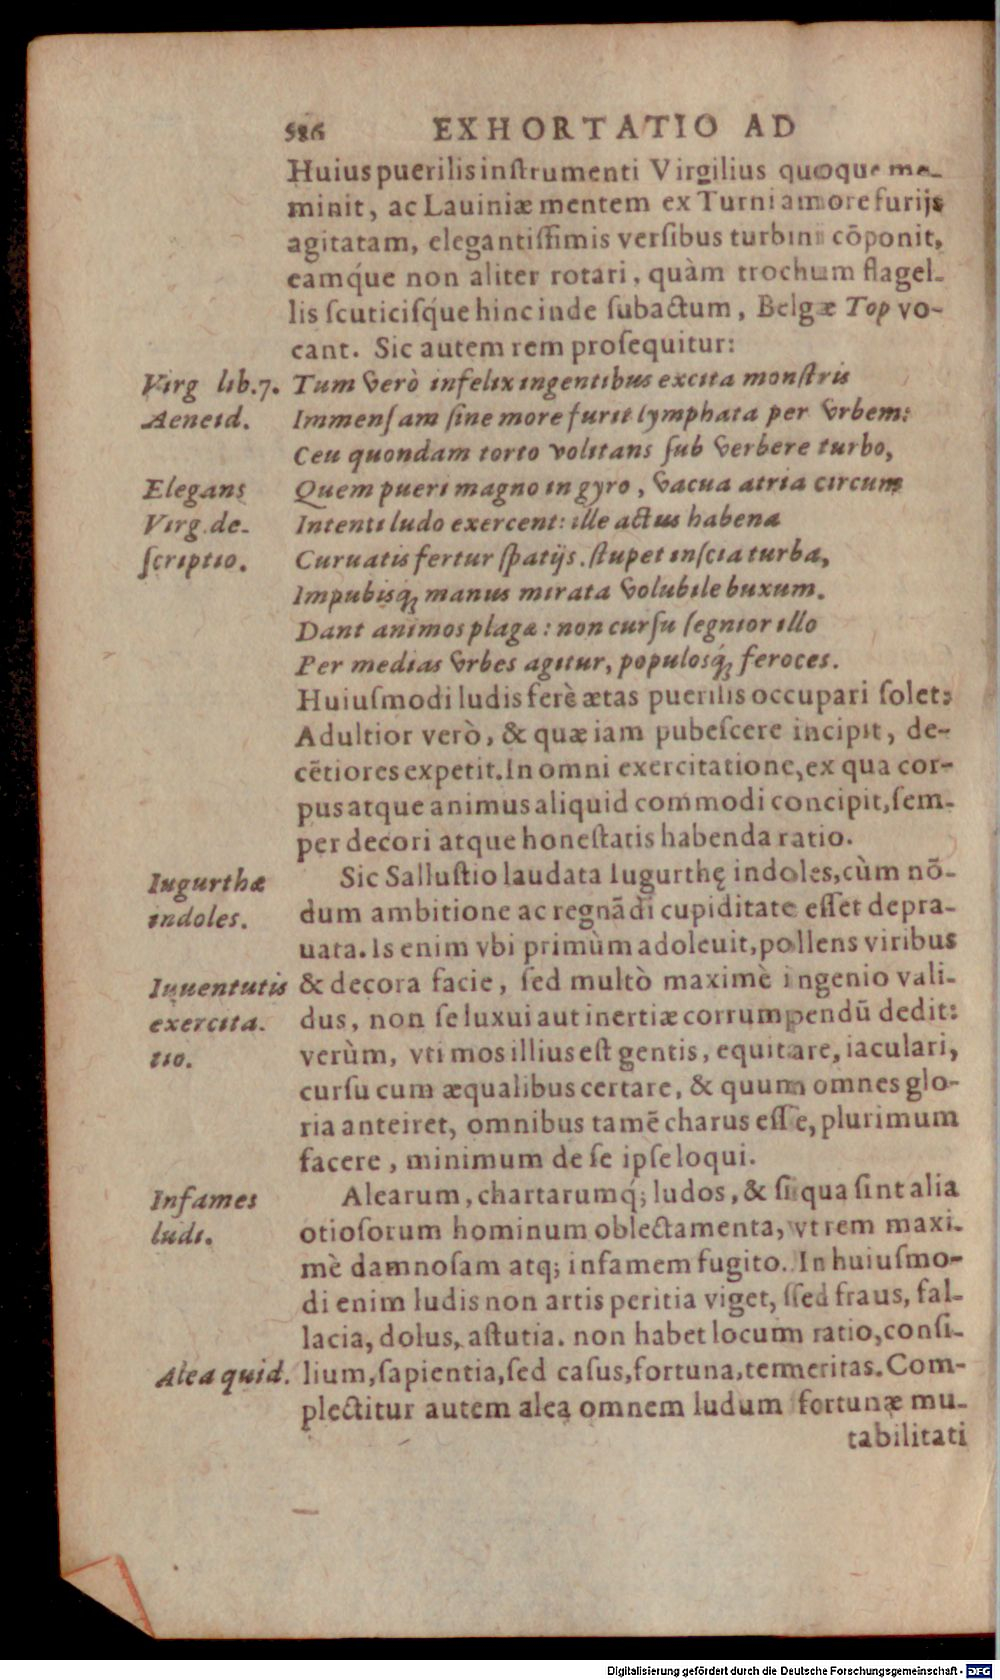 586 EXHORTATIO AD
Huius puerilis inſtrumenti Virgilius quoque me-
minit, ac Lauiniæ mentem ex Turni amore furijs
agitatam, elegantiſſimis verſibus turbini cōponit,
eamq́ue non aliter rotari, quàm trochum flagel-
lis ſcuticiſq́ue hinc inde ſubactum, Belgæ Top vo-
cant. Sic autem rem proſequitur:
Virg lib.7.
Aeneid.
Tum verò infelix ingentibus excita monſtris
Immenſam ſine more furit lymphata per vrbem:
Ceu quondam torto volitans ſub verbere turbo,
Elegans
Virg. de-
ſcriptio.
Quem pueri magno in gyro, vacua atria circum
Intenti ludo exercent: ille actus habena
Curuatis fertur ſpatijs. ſtupet inſcia turba,
Impubisq́; manus mirata volubile buxum.
Dant animos plagæ: non curſu ſegnior illo
Per medias vrbes agitur, populosq́; feroces.
Huiuſmodi ludis ferè ætas puerilis occupari ſolet:
Adultior verò, & quæ iam pubeſcere incipit, de-
cētiores expetit. In omni exercitatione, ex qua cor-
pus atque animus aliquid commodi concipit, ſem-
per decori atque honeſtatis habenda ratio.
Iugurthæ
indoles.
Sic Salluſtio laudata Iugurthę indoles, cùm nō-
dum ambitione ac regnādi cupiditate eſſet depra-
uata. Is enim vbi primùm adoleuit, pollens viribus
Iuuentutis
exercita-
tio.
& decora facie, ſed multò maximè ingenio vali-
dus, non ſe luxui aut inertiæ corrumpendū dedit:
verùm, vti mos illius eſt gentis, equitare, iaculari,
curſu cum æqualibus certare, & quum omnes glo-
ria anteiret, omnibus tamē charus eſſe, plurimum
facere, minimum de ſe ipſe loqui.
Infames
ludi.
Alearum, chartarumq́; ludos, & ſi qua ſint alia
otioſorum hominum oblectamenta, vt rem maxi-
mè damnoſam atq; infamem fugito. In huiuſmo-
di enim ludis non artis peritia viget, ſed fraus, fal-
lacia, dolus, aſtutia. non habet locum ratio, conſi-
Alea quid.
lium, ſapientia, ſed caſus, fortuna, temeritas. Com-
plectitur autem alea omnem ludum fortunæ mu-
tabilitati
Digitalisierung gefördert durch die Deutsche Forschungsgemeinschaft - DFG